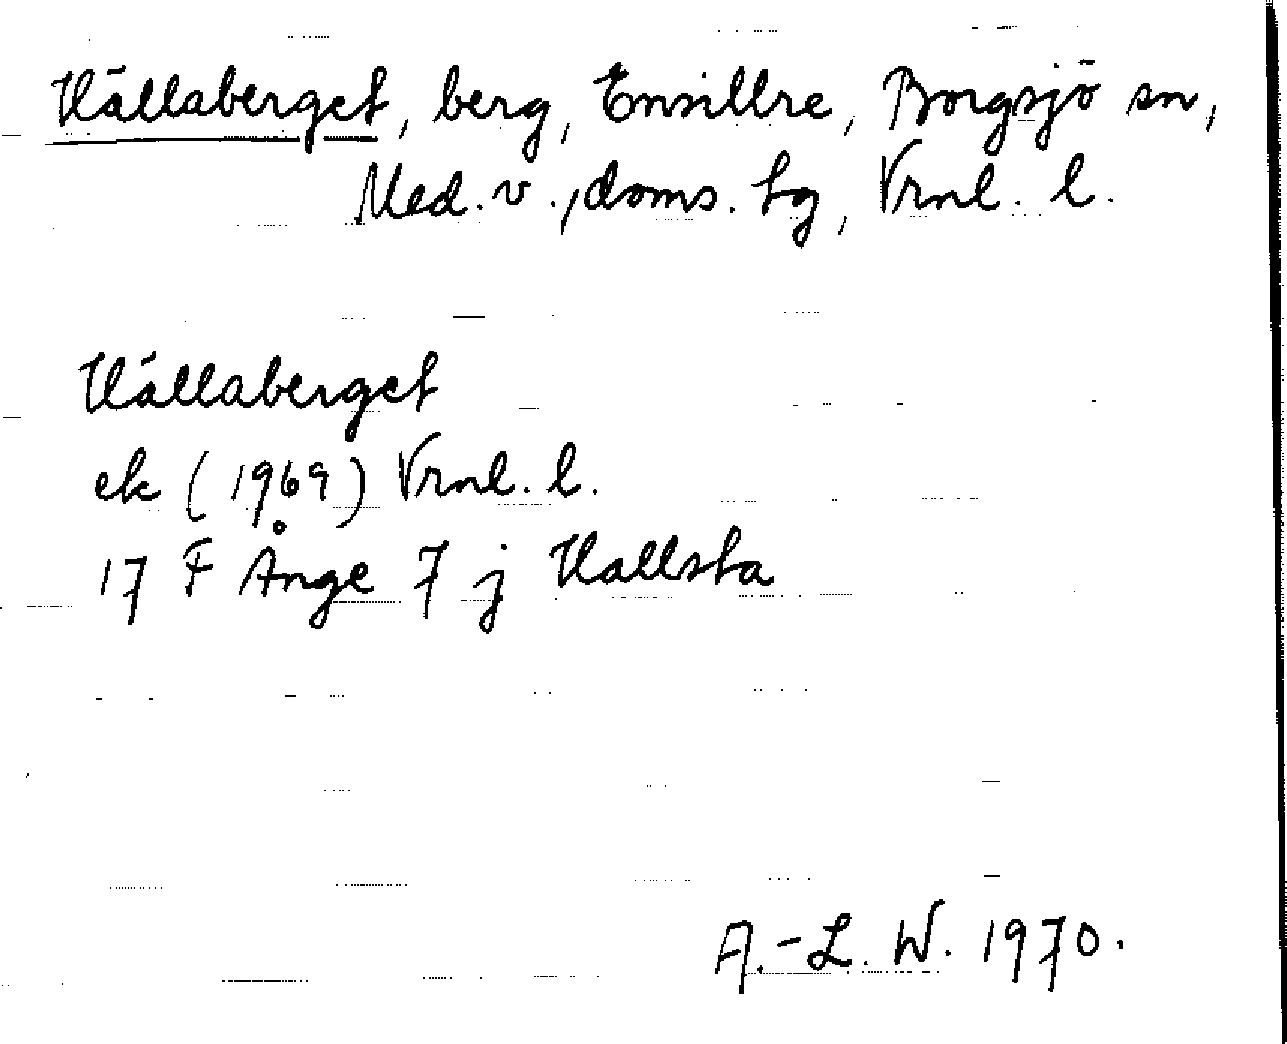 Hällaberget, berg, Ensillre, Borgsjö sn,
Med. v., doms. tg, Vrnl. l.
Hällaberget
ek (1969) Vrnl. l.
17 F Ånge 7 j Hallsta
A.-L. W. 1970.